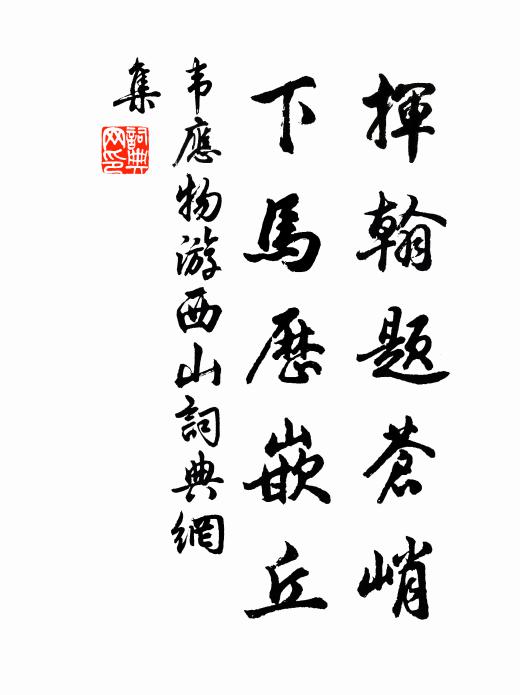 揮翰題蒼峭
下馬歷嵌丘
韦應物游西山詞典網
集
詞典
网印